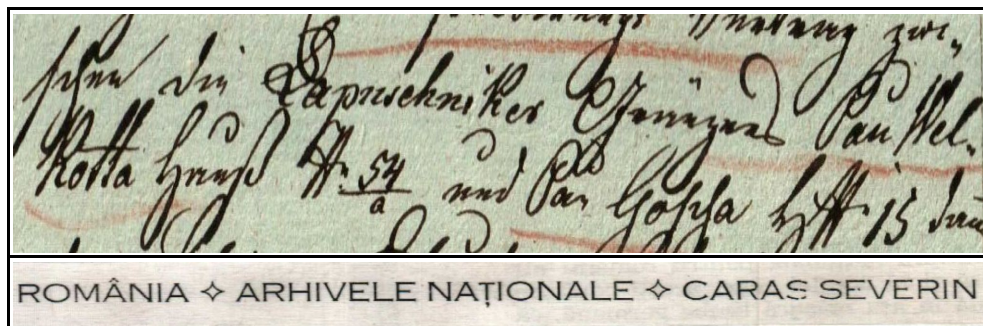 Vertrag zwi-
schen die Lapuschniker Grenzers Pau Wel-
kotta Hauß N. 54/a und Pau Goscha H N 15 dau
ROMÂNIA ✧ ARHIVELE NAȚIONALE ✧ CARAS SEVERIN